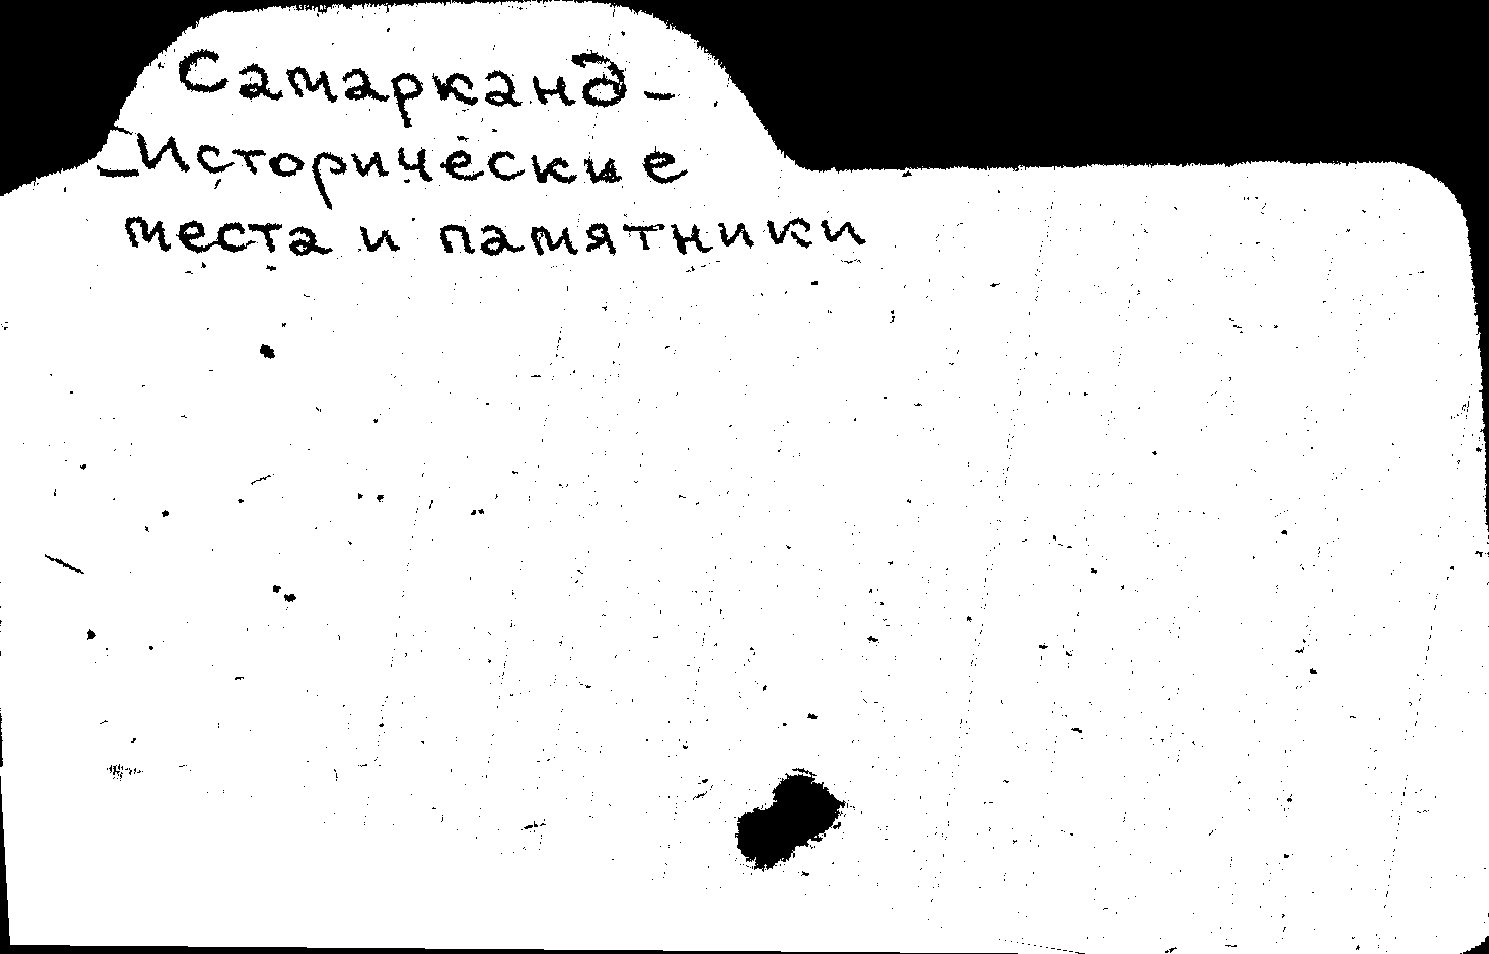 Самарканд -
- Исторические
места и памятники